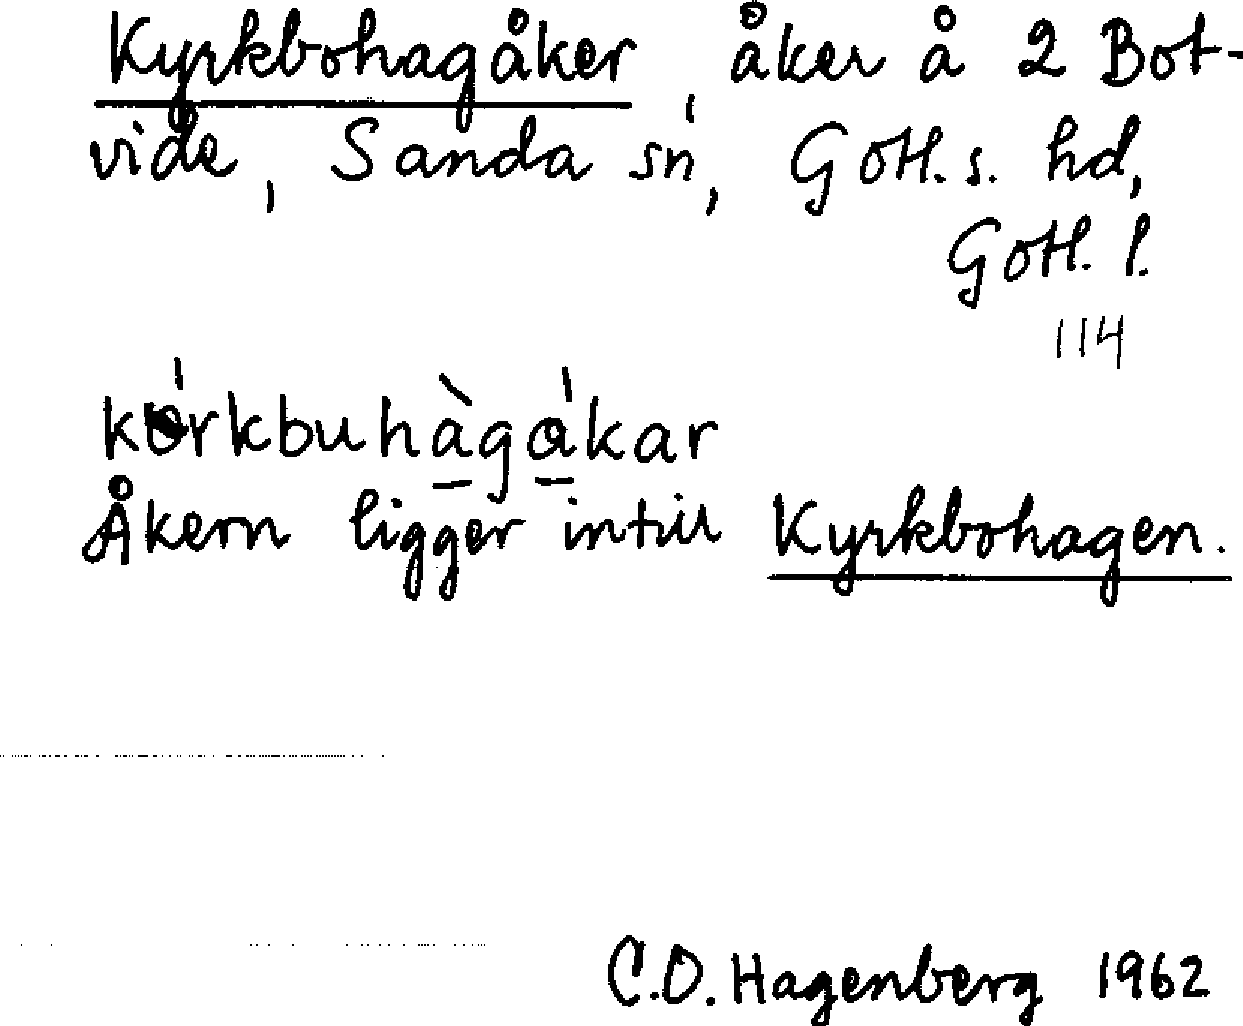 Kyrkbohagåker, åker å 2 Bot-
vide, Sanda sn, Gotl. s. hd,
Gotl. l.
114
kórkbuhàgákar
Åkern ligger intill Kyrkbohagen.
C.O. Hagenberg 1962